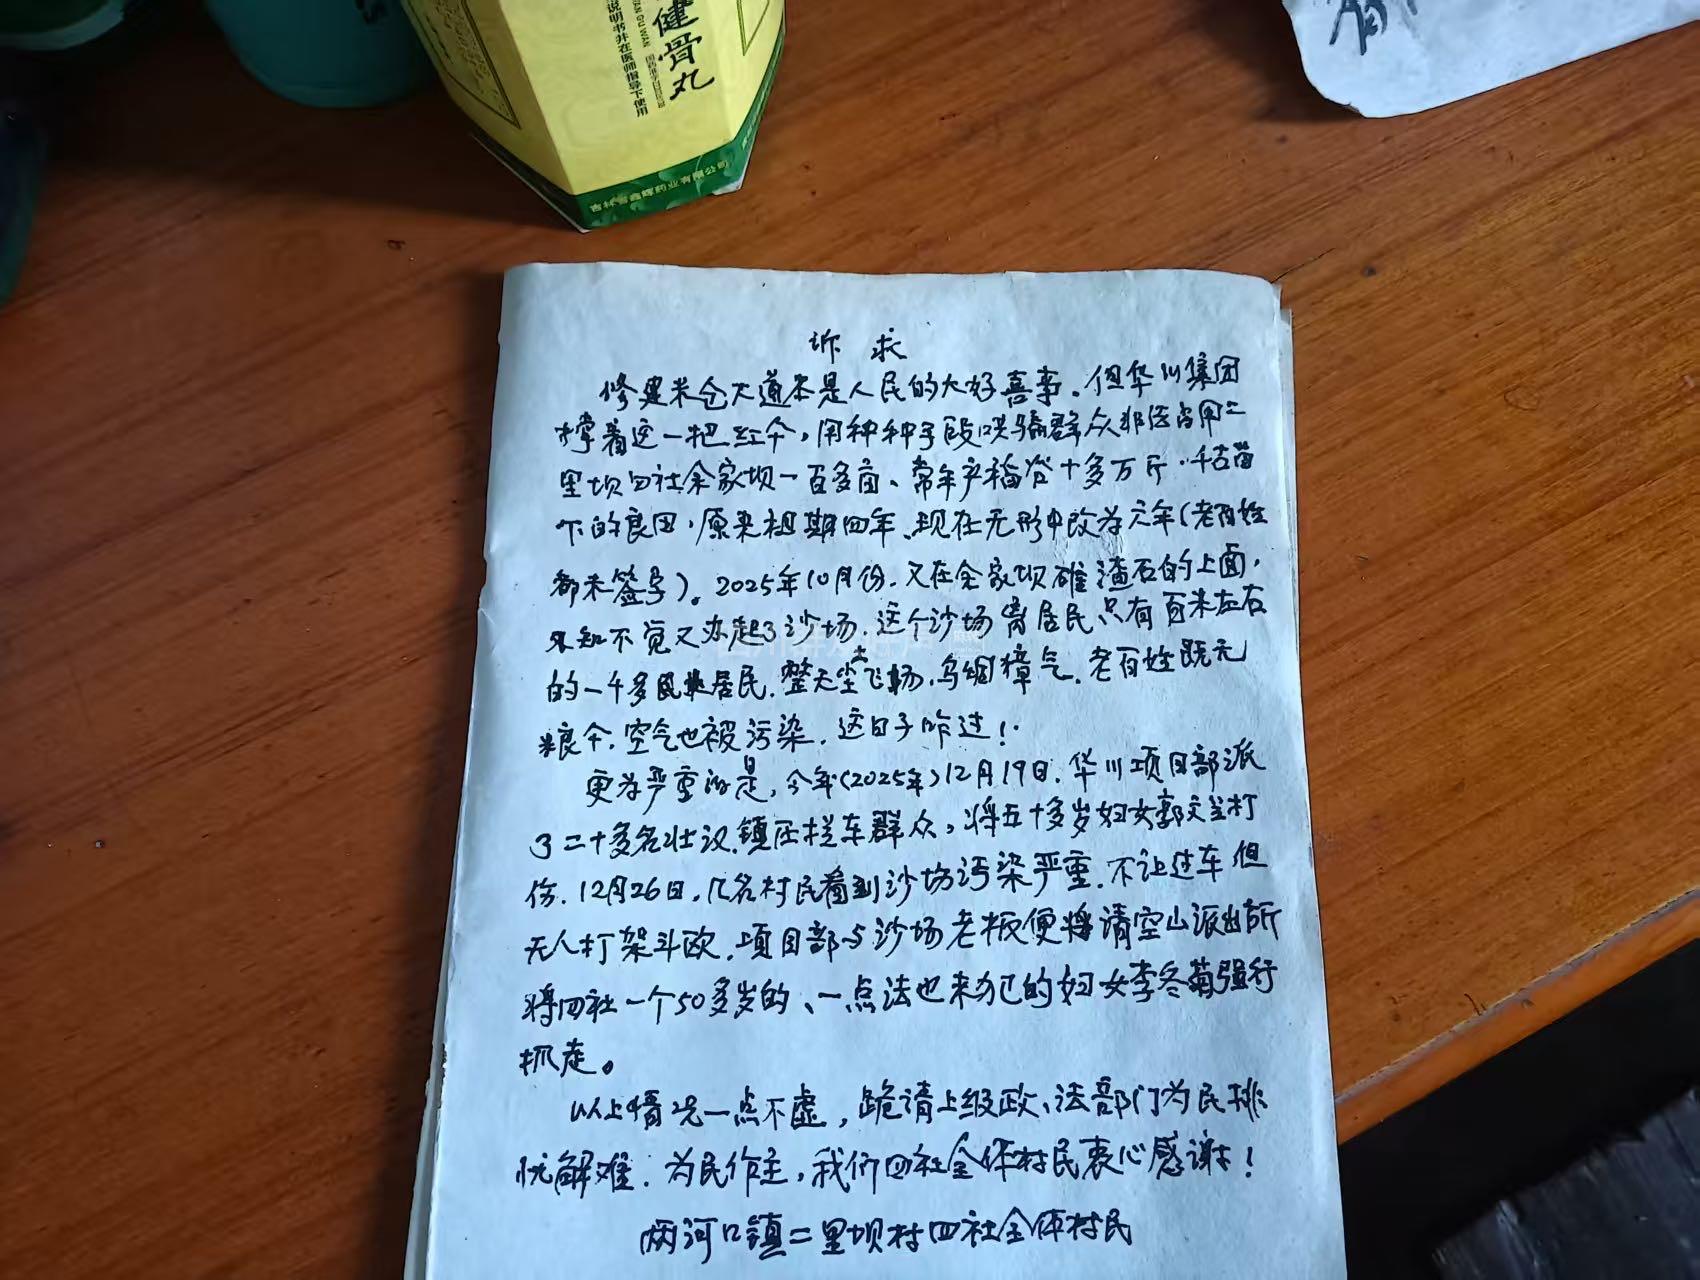 健骨丸
说明书并在医师指导下使用
诉求
修建米仓大道本是人民的大好喜事。但华川集团
撑着这一把红伞,用种种手段哄骗群众非法占用二
里坝四社余家坝一百多亩、常年产稻谷十多万斤·千古留
下的良田,原来租期四年、现在无形中改为六年(老百姓
都未签字)。2025年10月份.又在余家坝碓渣石的上面,
不知不觉又办起了沙场.这个沙场离居民只有百米左右
的一千多居民.整天尘土飞扬.乌烟瘴气.老百姓既无
粮个.空气也被污染.这日子咋过!
更为严重的是,今年(2025年)12月19日.华川项目部派
了二十多名壮汉.镇压拦车群众,将五十多岁妇女郭文兰打
伤.12月26日,几名村民看到沙场污染严重.不让过车但
无人打架斗殴.项目部与沙场老板便将请空山派出所
将四社一个50多岁的、一点法也未犯的妇女李冬菊强行
抓走。
以上情况一点不虚,跪请上级政、法部门为民排
忧解难.为民作主,我们四社全体村民衷心感谢!
两河口镇二里坝村四社全体村民